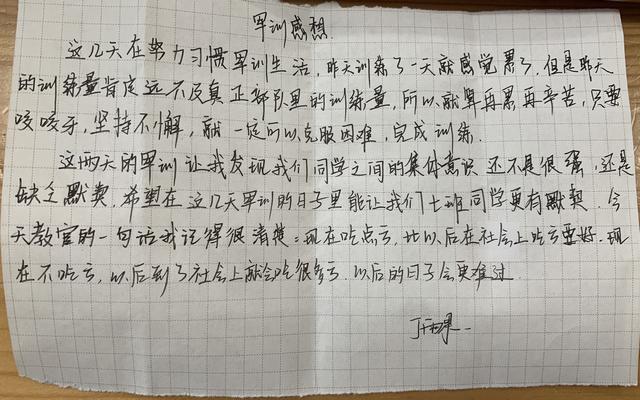 军训感想
这几天在努力习惯军训生活，昨天训练了一天就感觉累了，但是昨天
的训练量肯定远不及真正部队里的训练量，所以就算再累再辛苦，只要
咬咬牙，坚持不懈，就一定可以克服困难，完成训练．
这两天的军训让我发现我们同学之间的集体意识还不是很强，还是
缺乏默契，希望在这几天军训的日子里能让我们七班同学更有默契．今
天教官的一句话我记得很清楚：现在吃点亏，比以后在社会上吃亏要好．现
在不吃亏，以后到了社会上就会吃很多亏．以后的日子会更难过．